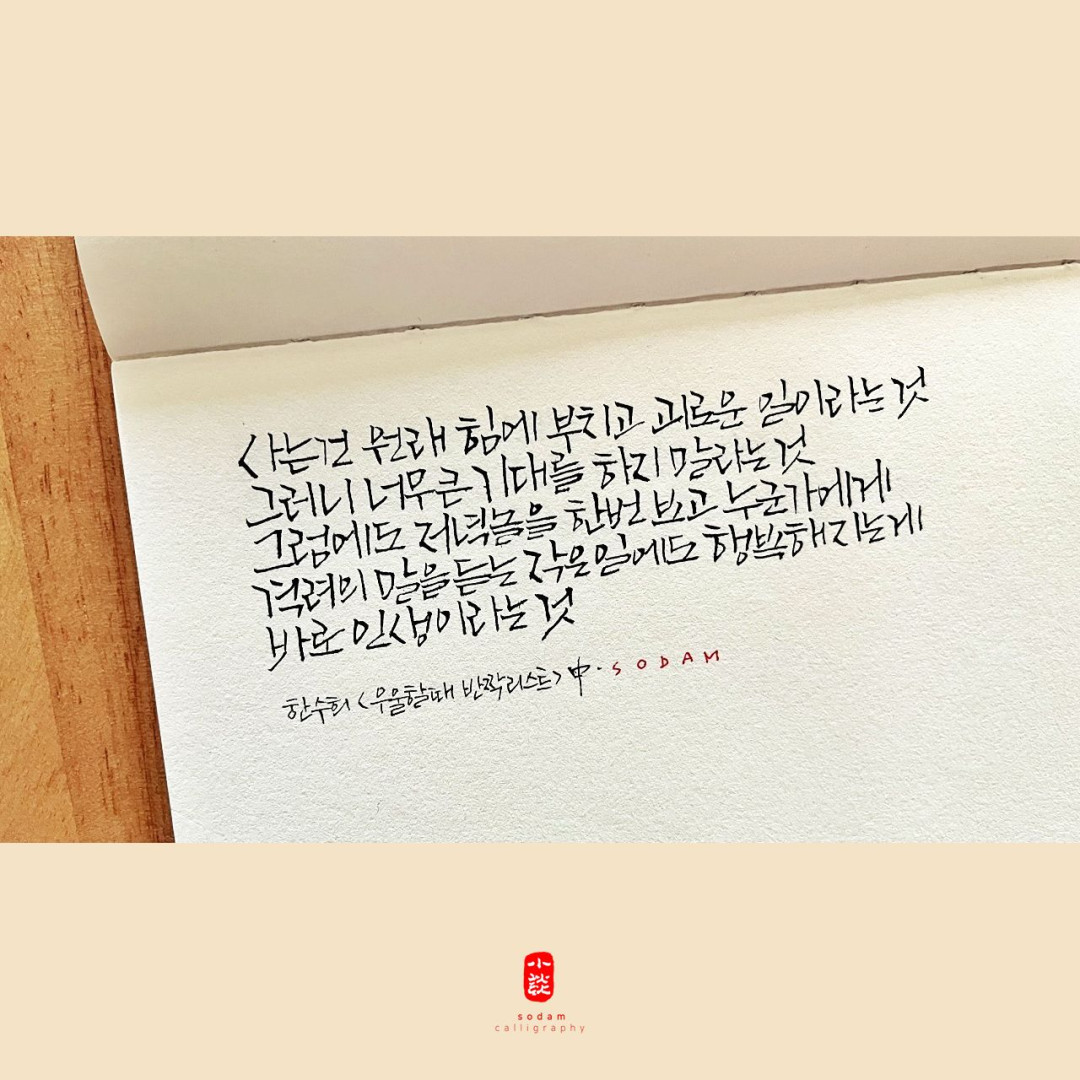 사는건 원래 힘에 부치고 괴로운 일이라는것
그러니 너무큰 기대를 하지 말라는것
그럼에도 저녁놀을 한번 보고 누군가에게
격려의 말을 듣는 작은일에도 행복해지는게
바로 인생이라는것
한수희 <우울할때 반짝리스트> 中. SODAM
小
談
sodam
calligraphy